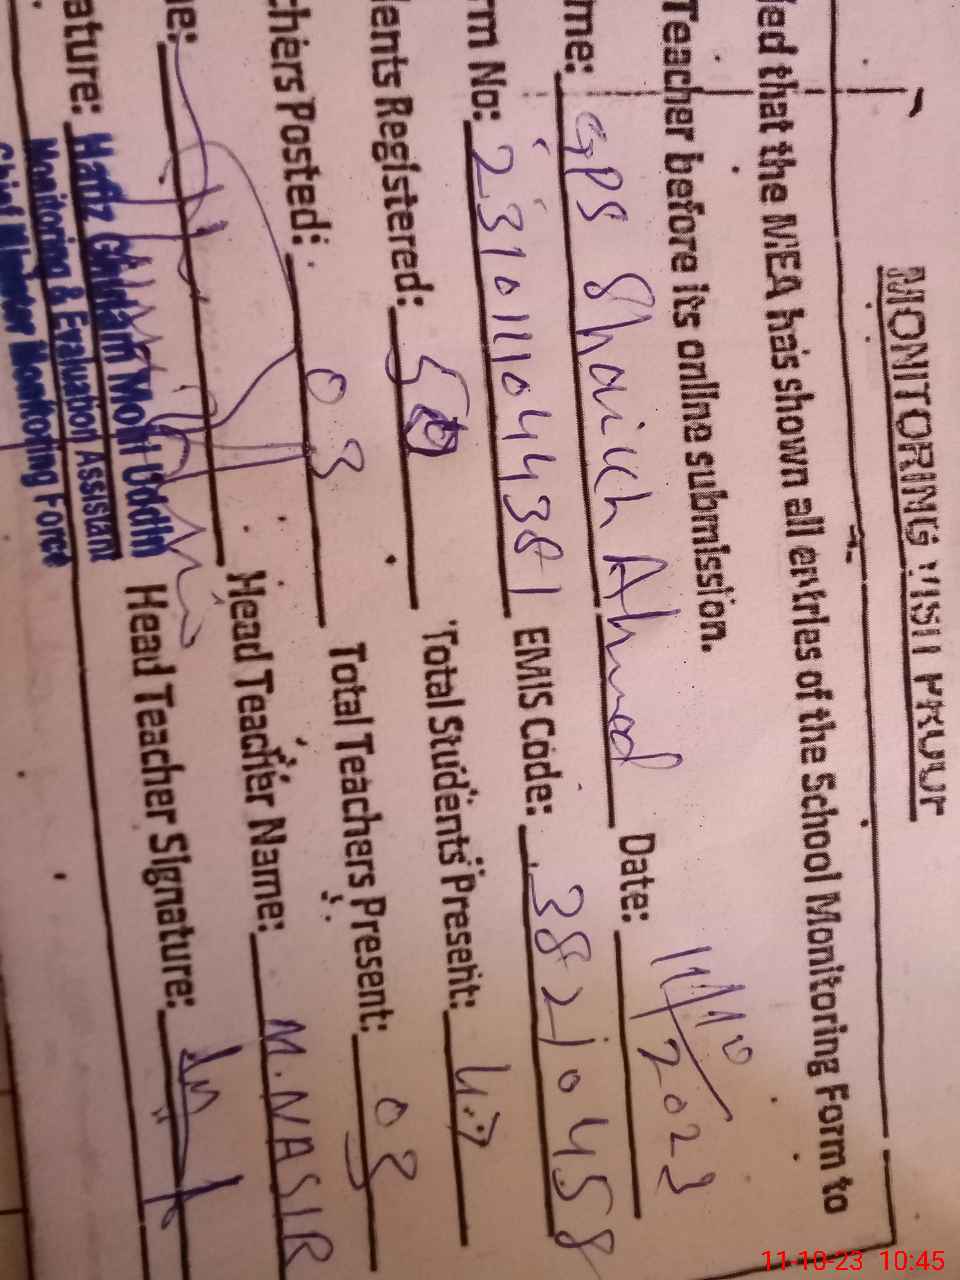 MONITORING VISIT PROOF
ied that the MEA has shown all entries of the School Monitoring Form to
Teacher before its online submission.
me: GPS Shaikh Ahmad Date: 11/10/2023
rm No: 2310111044381 EMIS Code: 38210458
lents Registered: 50 Total Students Present: 47
chers Posted: 03 Total Teachers Present: 03
e: Head Teacher Name: M. NASIR
ature: Head Teacher Signature:
Hafiz Ghulam Mohi Uddin
Monitoring & Evaluation Assistant
Chief Minister Monitoring Force
11-10-23 10:45